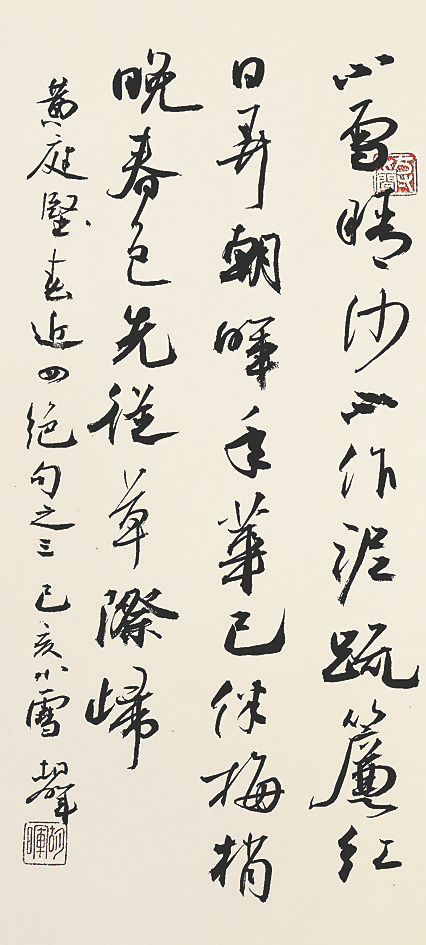 小雪晴沙不作泥疏簾紅
日弄朝暉年華已伴梅梢
晚春色先從草際歸
黃庭堅春近四絕句之三 己亥小雪